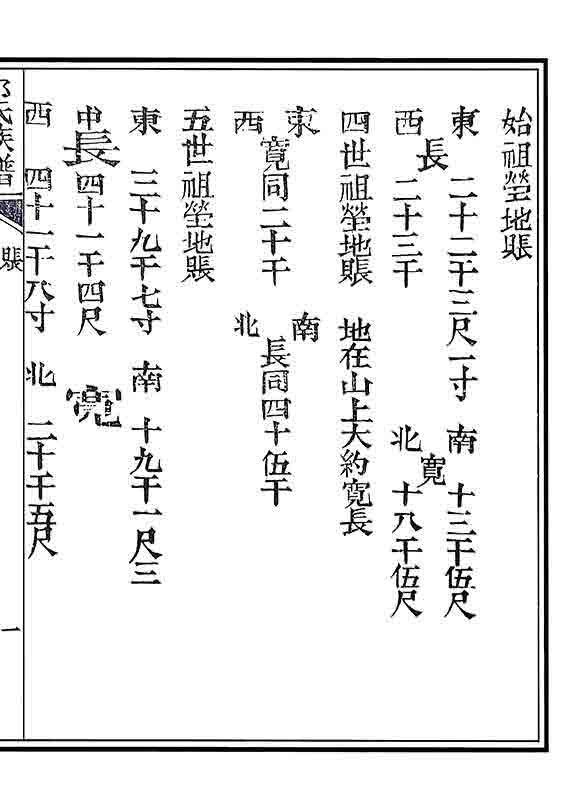 始祖塋地賬
東 二十二干三尺一寸 南 十三干伍尺
長 寬
西 二十三干 北 十八干伍尺
四世祖塋地賬 地在山上大約寬長
東 南
寬同二十干 長同四十伍干
西 北
五世祖塋地賬
東 三十九干七寸 南 十九干一尺三
中長四十一干四尺 寬
西 四十一干八寸 北 二十干五尺
氏族譜 賬 一